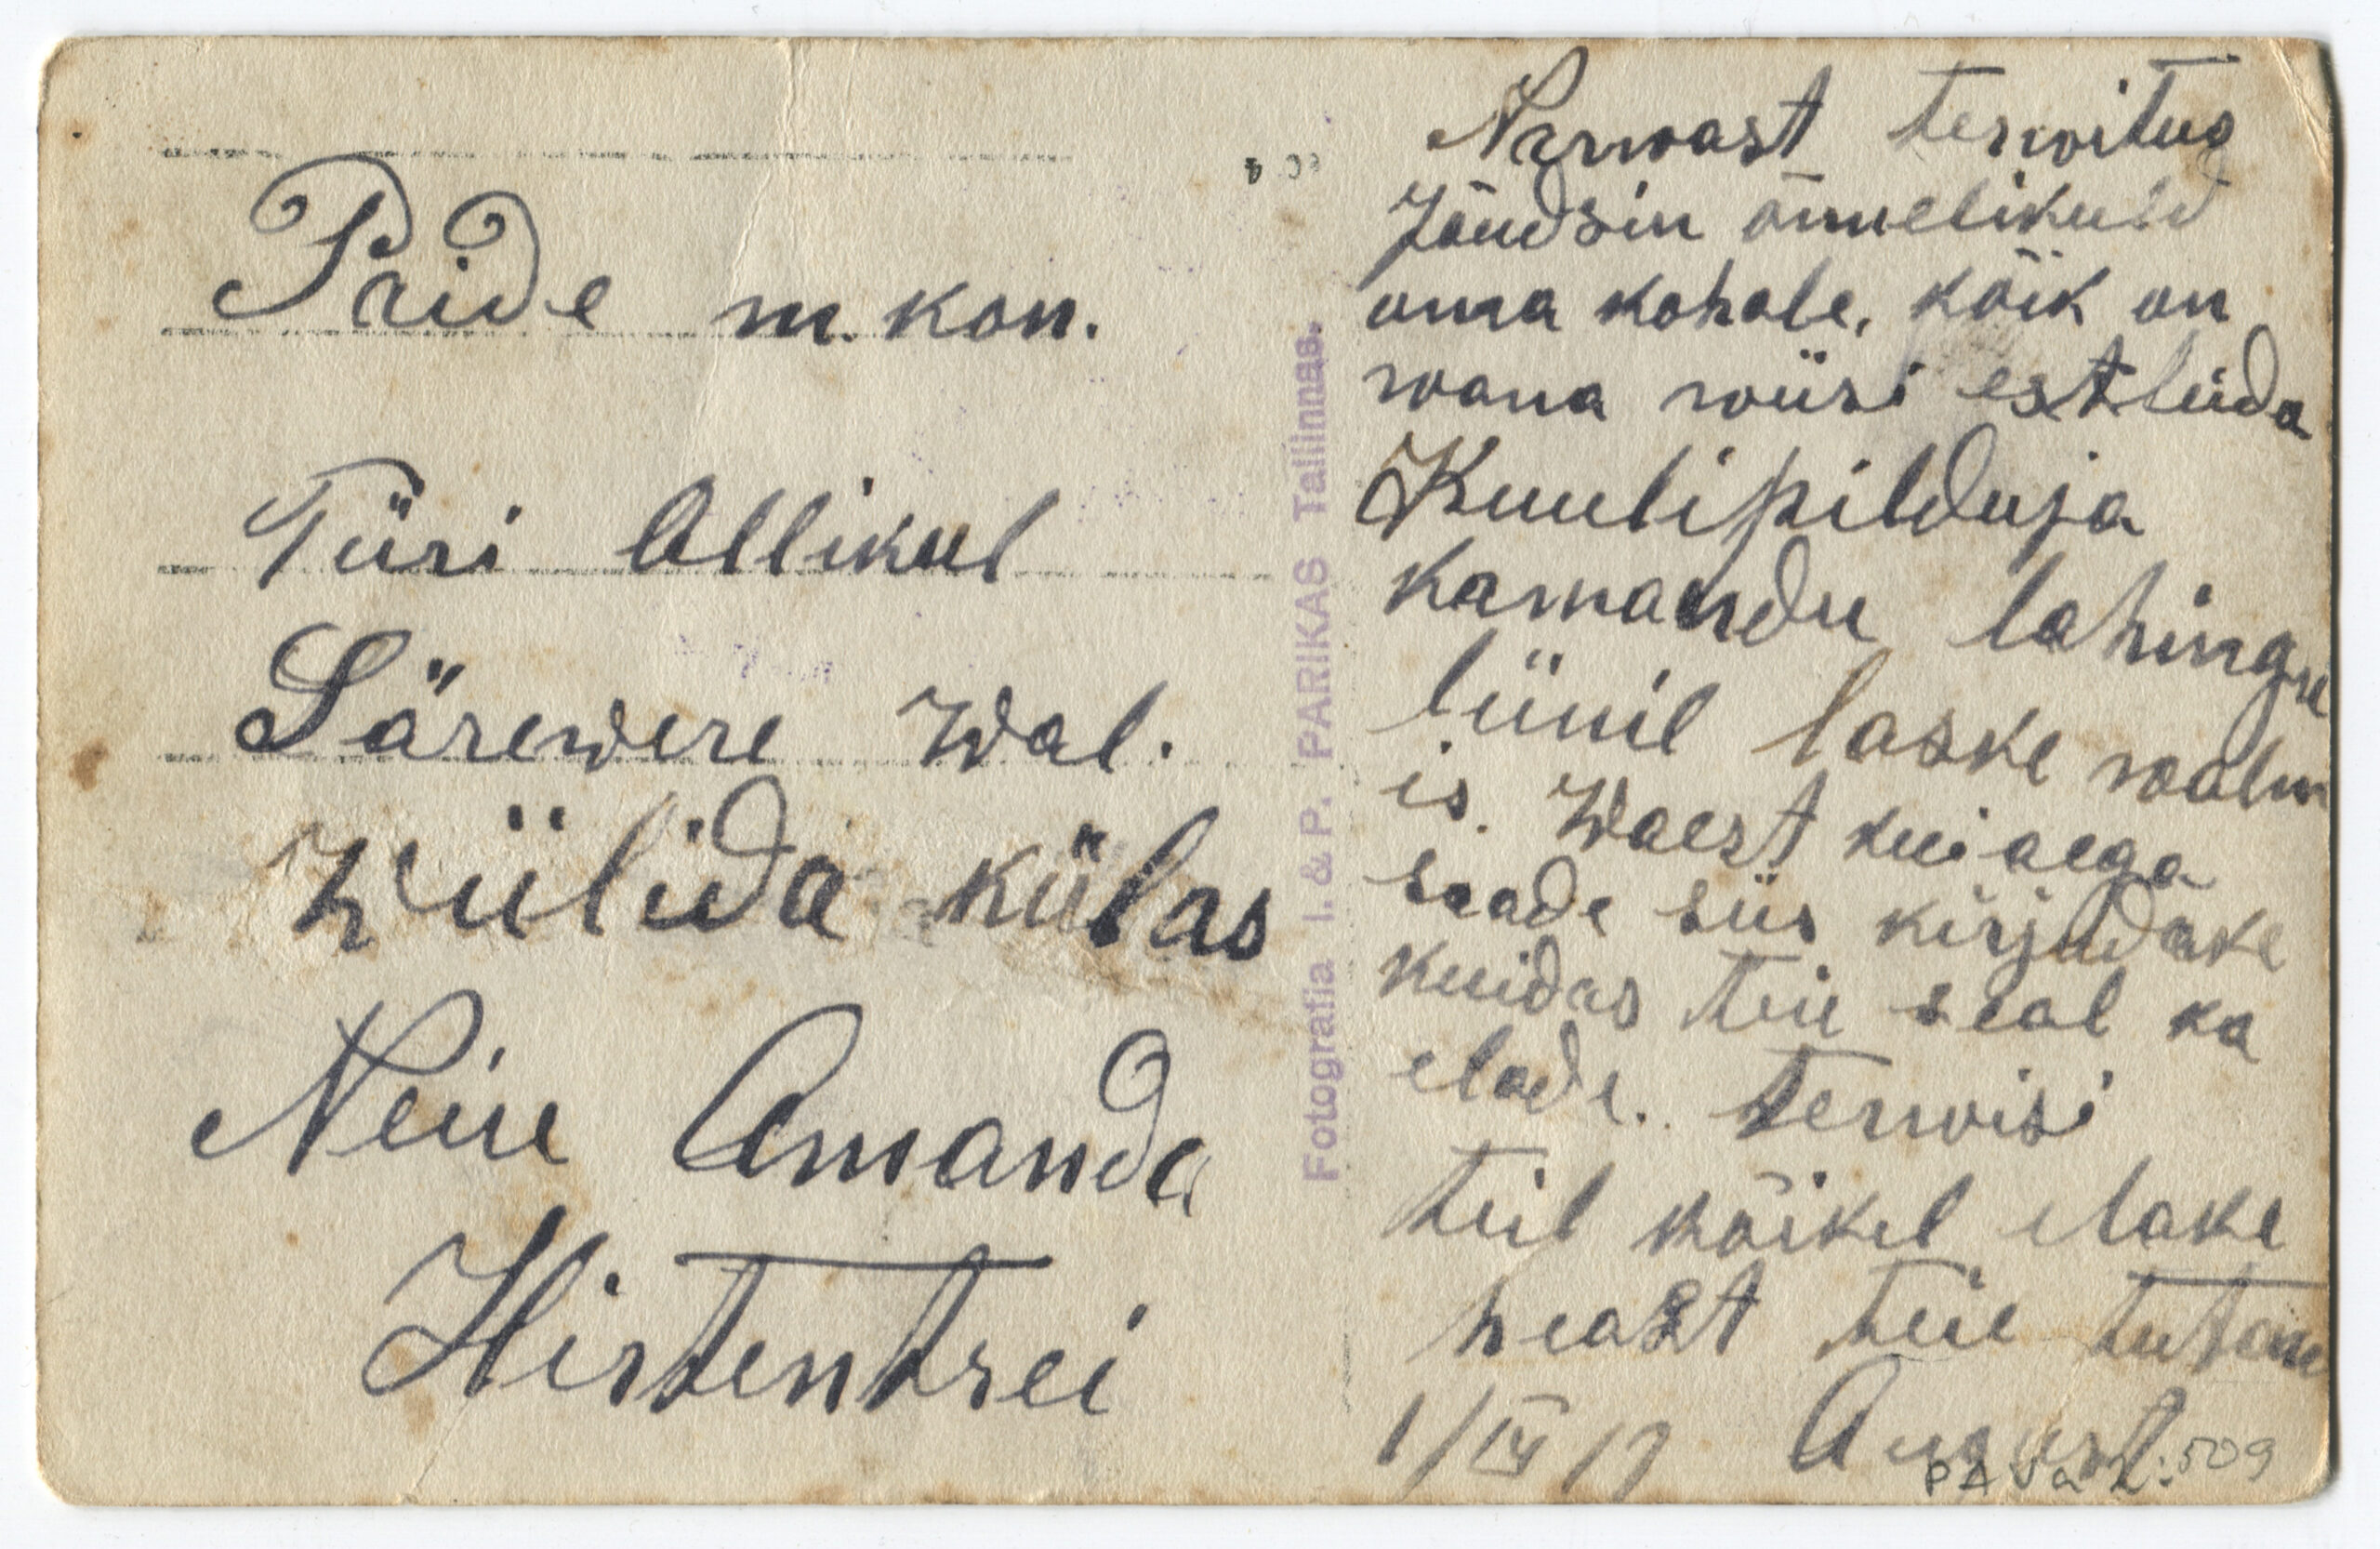 Paide m. kon.
Türi Allikul
Särewere Wal.
Wülüda külas
Neiu Amanda
Hirtentrei
Fotografia I. & P. PARIKAS Tallinnas.
Narwast terwitus
Jõudsin õnnelikuld
oma kohale, kõik on
wana wiisi est lüida
Kuulipilduja
kamandu lahingu
liinil laske walm
is. Waest kui aega
saade siis kirjudake
kuidas teie seal ka
elade. terwisi
teil kõikel elake
heast teie tuttaw
1/IX 19 August
PA Va 2:509